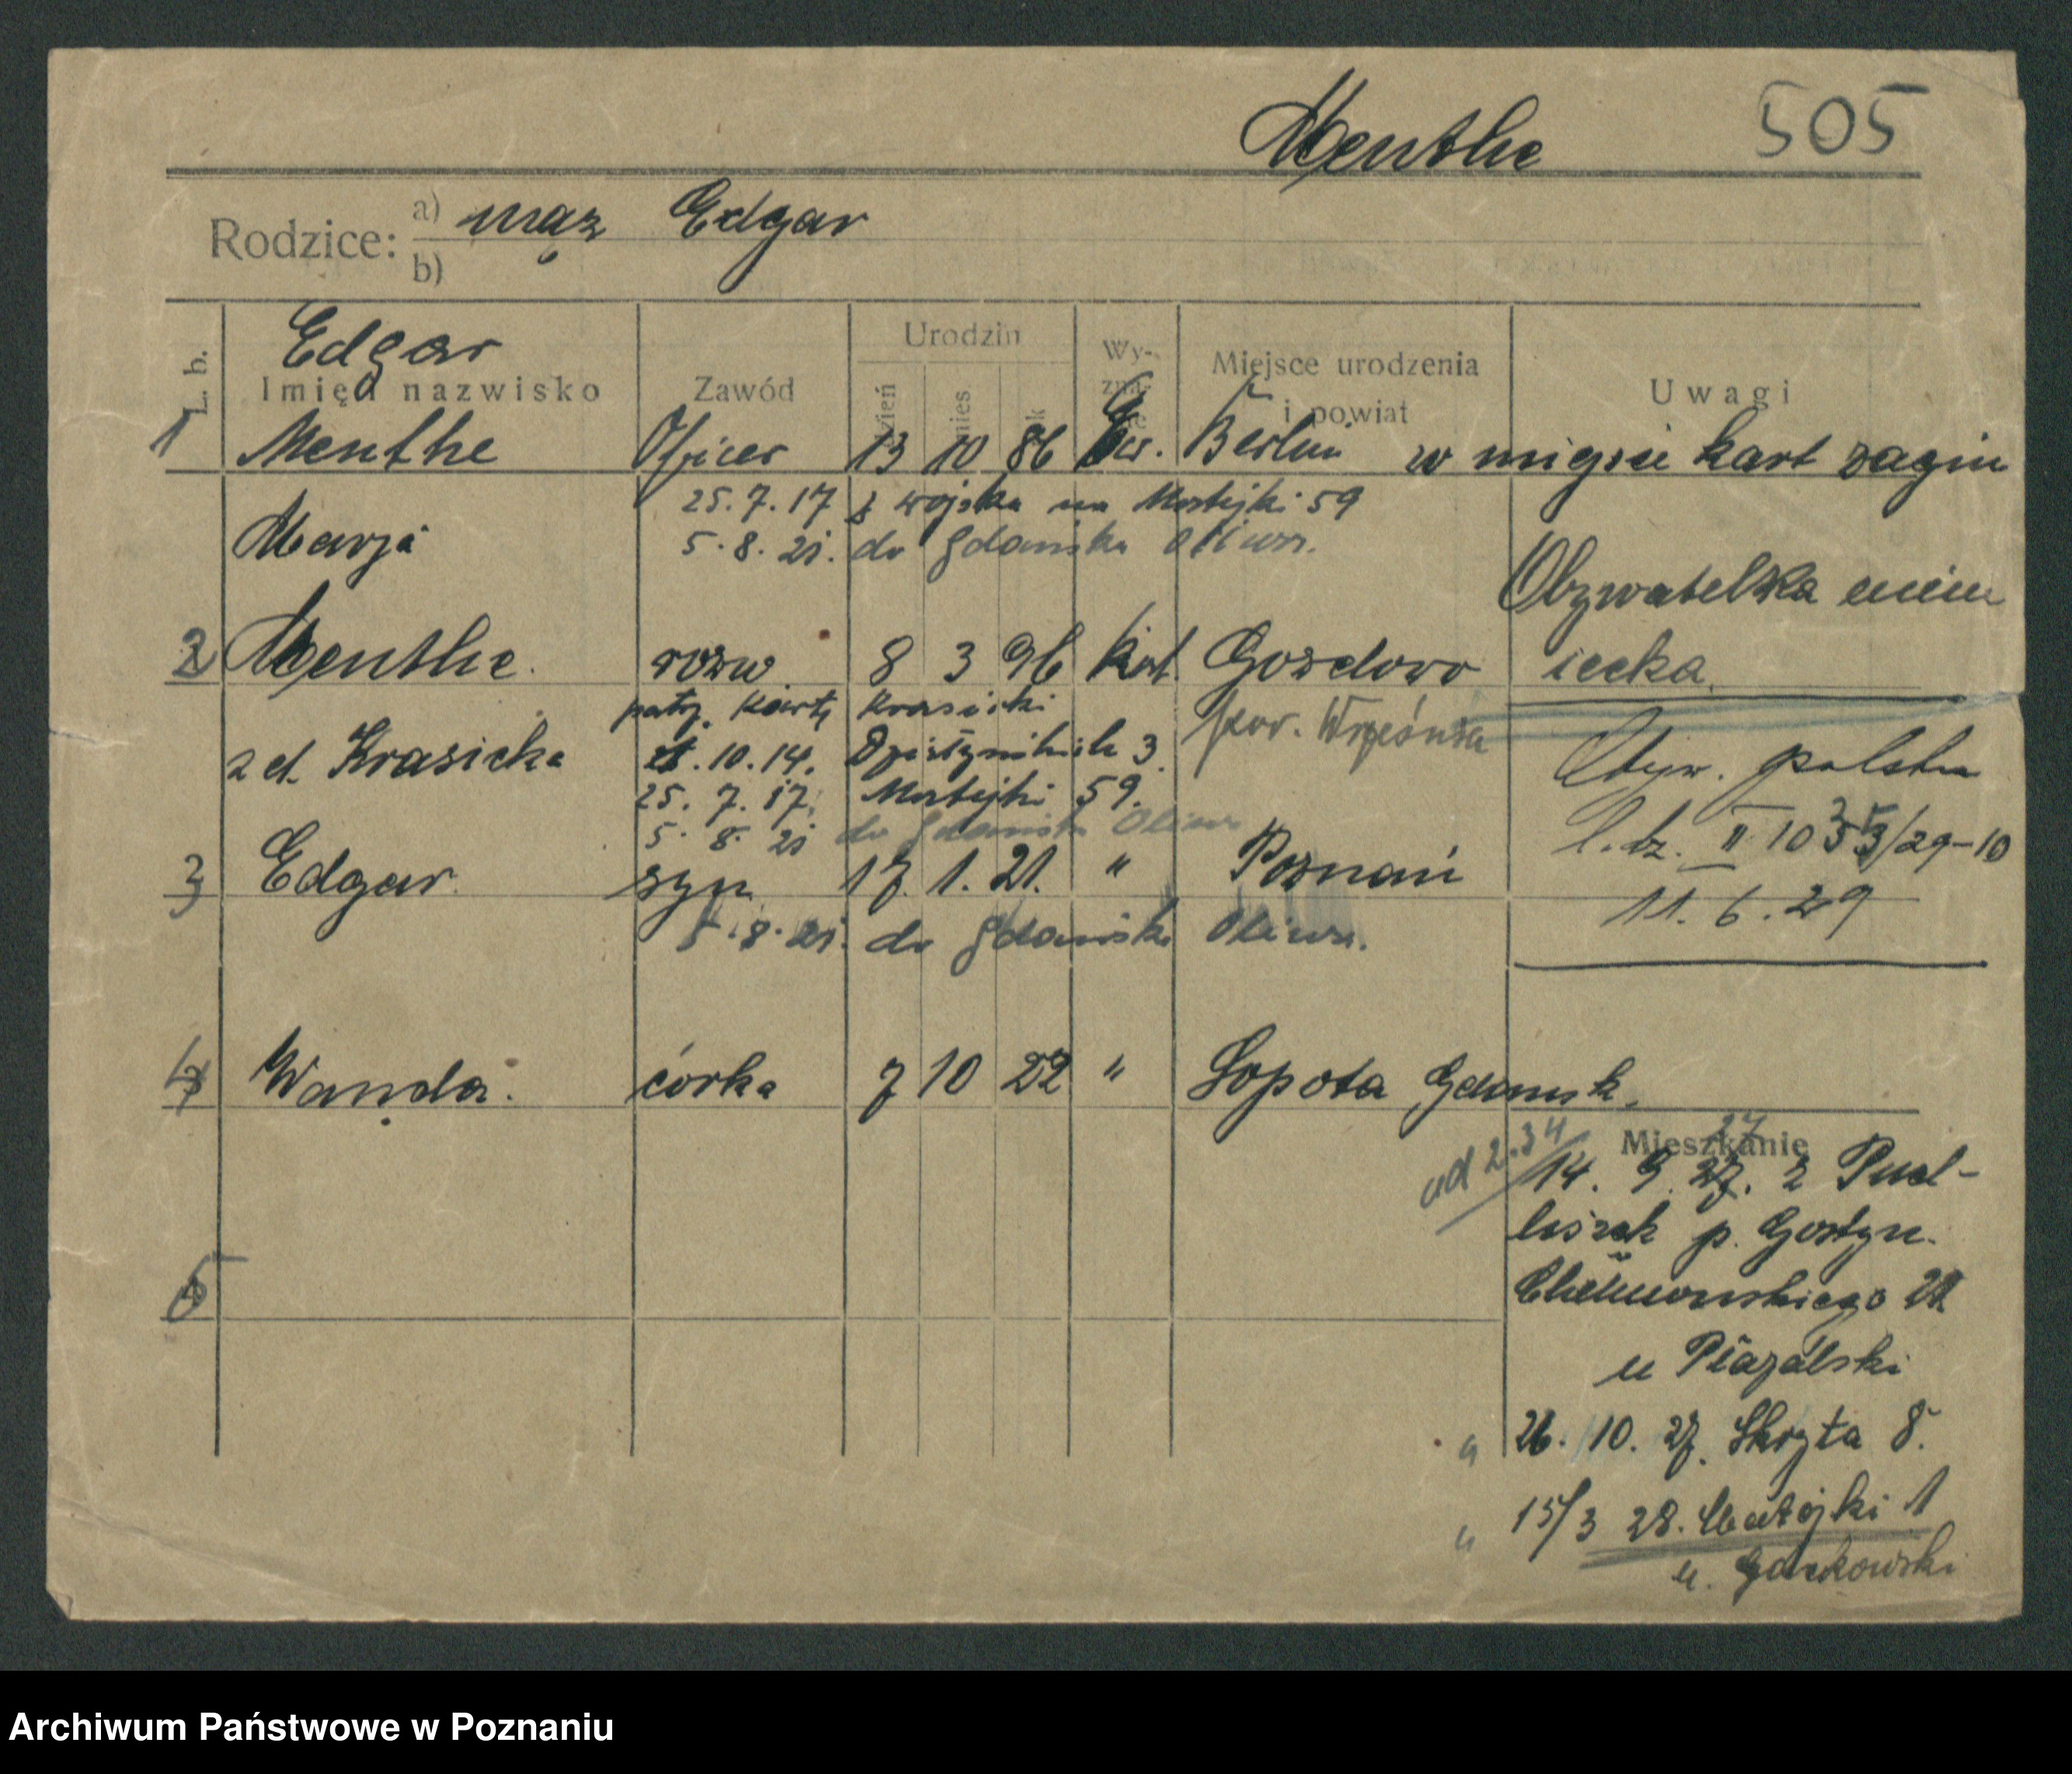 Menthe 505
Rodzice: a) mąż Edgar
b)
L. b. Imię i nazwisko Zawód Urodzin dzień mies. rok Wyznanie Miejsce urodzenia i powiat Uwagi
Edgar
1 Menthe Oficer 13 10 86 Ew. Berlin w miejsce kart zagin
25.7.17 z wojska na Matejki 59
5.8.21. do Gdańska Oliwa.
Marja
2 Menthe. rozw 8 3 96 kat. Gozdowo
Obywatelka niem
iecka.
patrz kartę Krasicki
pow. Września
zd. Krasicka
10.14. 3
25.7.17. Matejki 59.
5.8.21 do Gdańska Oliwa
Obyw. polska
l. dz. II 10 /29-10
11.6.29
3 Edgar. syn 17. 1. 21. " Poznań
5.8.21. do Gdańska Oliwa.
4 Wanda. córka 7 10 22 " Sopota Gdansk.
od 2.34
Mieszkanie
27
14. 9. 27. z Pud-
liszek p. Gostyn.
Chełmonskiego 22
u
5
" 26. 10. 27. Skryta 8.
" 15/3 28. Matejki 1
u. Garkowski
Archiwum Państwowe w Poznaniu